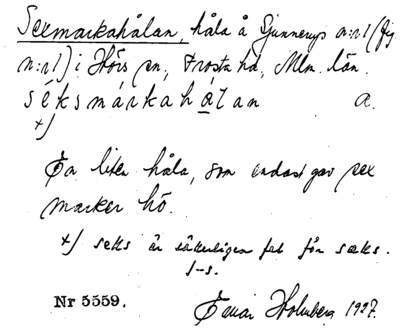 Sexmarkahålan, håla å Sjunnerup n:r 1 (fig
n:r 1) i Hörs sn, Frosta hd, Mlm. län.
séksmárkahålan a.
x)
En liten håla, som endast gav sex
marker hö.
x) seks är säkerligen fel för sæks.
Nr 5559.
Einar Holmberg 1927.